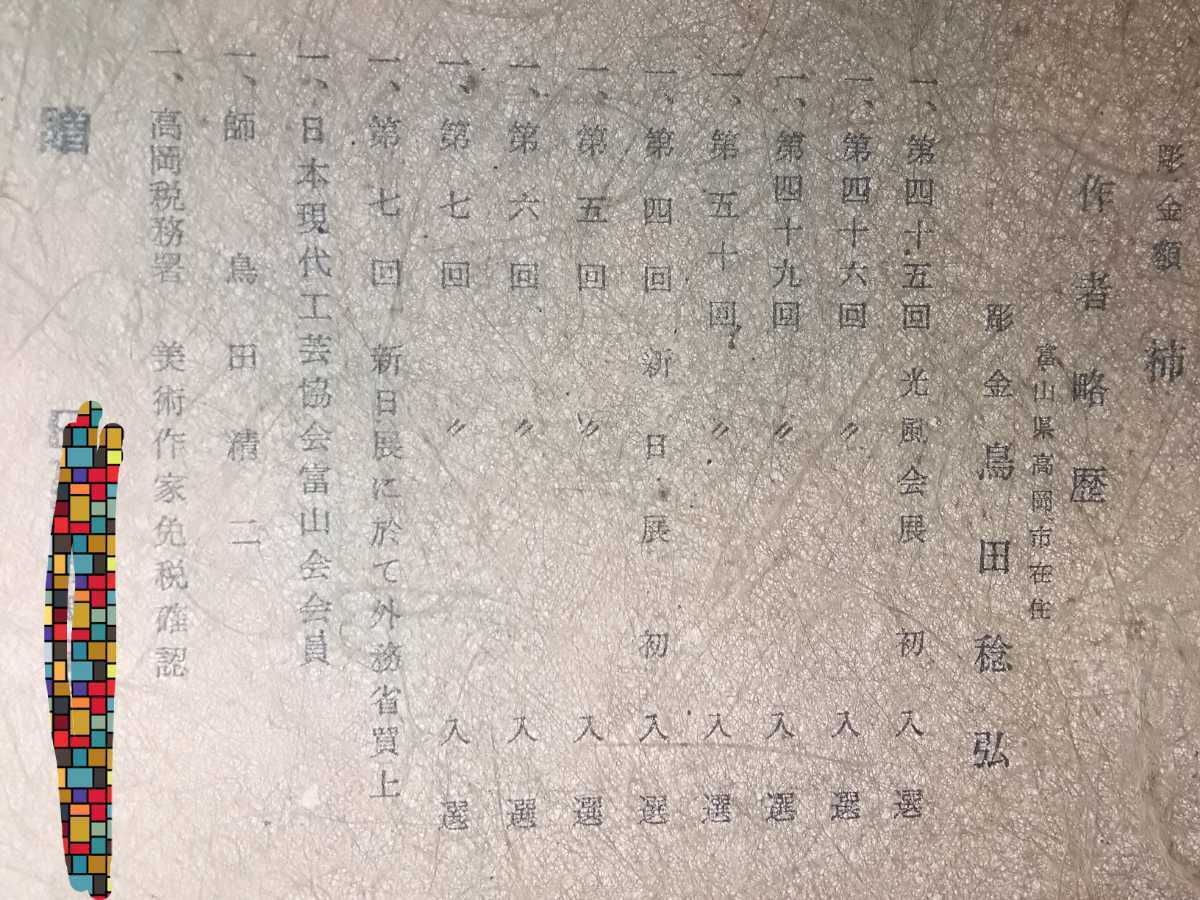 彫金額 柿
作者略歴
富山県高岡市在住
彫金 鳥田稔弘
一、第四十五回 光風会展 初入選
一、第四十六回 〃 入選
一、第四十九回 〃 入選
一、第五十回 〃 入選
一、第四回 新日展 初入選
一、第五回 〃 入選
一、第六回 〃 入選
一、第七回 〃 入選
一、第七回 新日展に於て外務省買上
一、日本現代工芸協会富山会会員
一、師 鳥田積二
一、高岡税務署 美術作家免税確認
贈